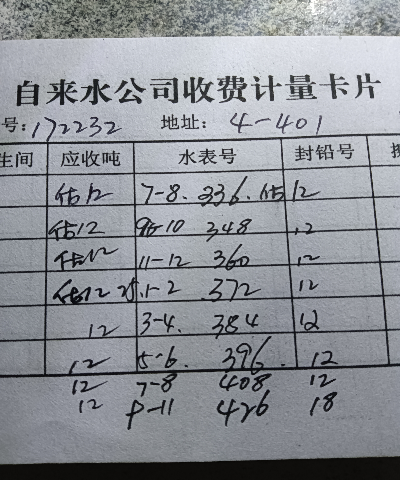 自来水公司收费计量卡片
号:172232 地址: 4-401
生间 应收吨 水表号 封铅号
估12 7-8. 336. 估12
估12 9-10 348 12
估12 11-12 360 12
估12 25.1-2 372 12
12 3-4. 384 12
12 5-6. 396. 12
12 7-8 408 12
12 9-11 426 18